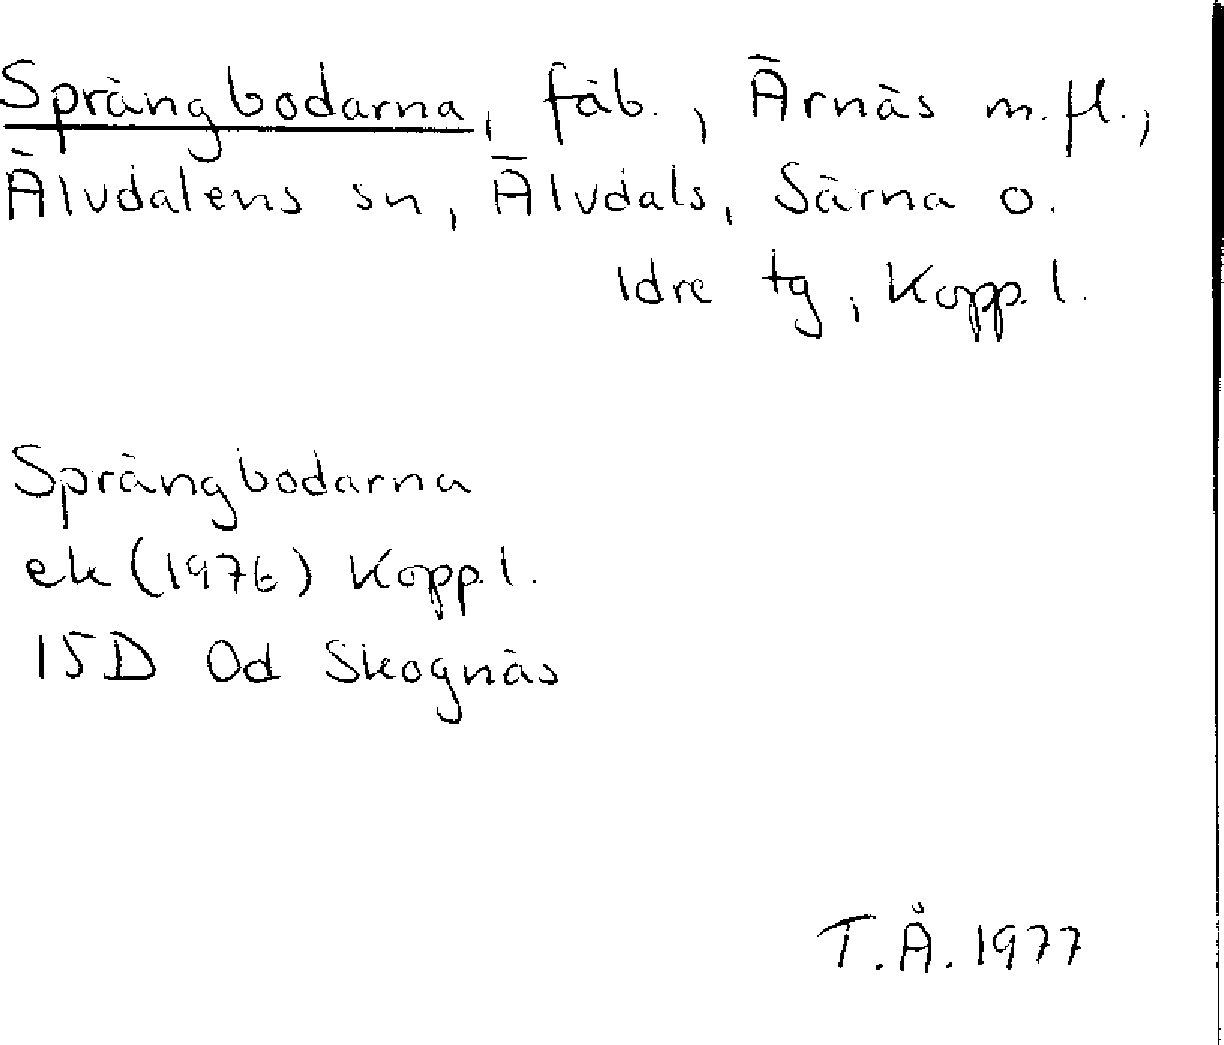 Sprängbodarna, fäb., Ärnäs m.fl.,
Älvdalens sn, Älvdals, Särna o.
Idre tg, Kopp. l.
Sprängbodarna
ek (1976) Kopp. l.
15D 0d Skognäs
T.Å. 1977